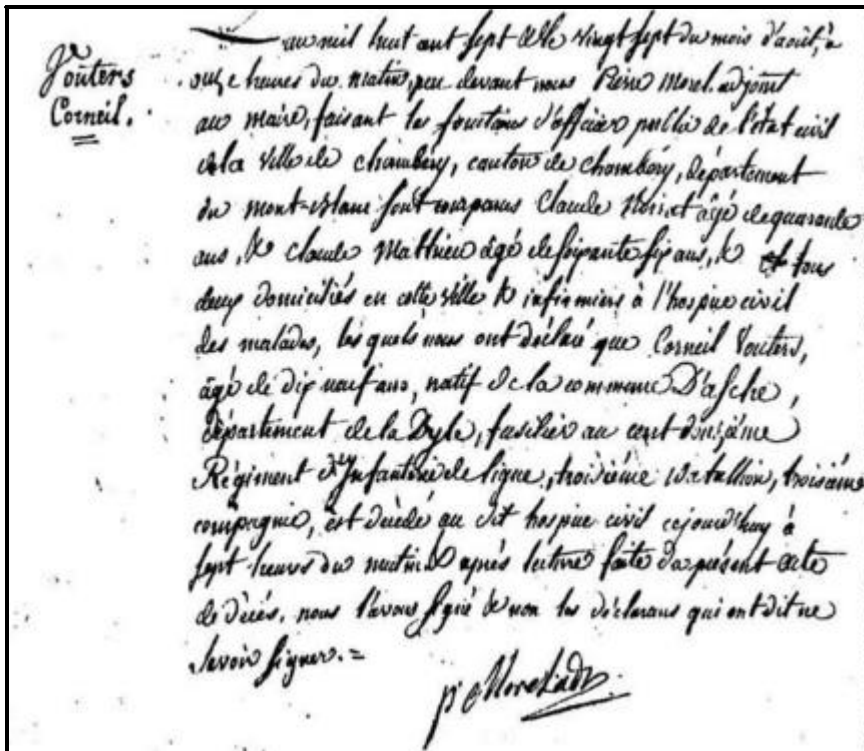 Vouters
Corneil.
L'an mil huit cent sept & le vingt sept du mois d'août, à
onze heures du matin, par devant nous Pierre Morel adjoint
au maire, faisant les fonctions d'officier public de l'état civil
de la ville de chambéry, canton de chambéry, département
du mont-blanc sont comparus Claude âgé de quarante
ans, & claude Matthieu âgé de soixante six ans, & tous
deux domiciliés en cette ville & infirmiers à l'hospice civil
des malades, les quels nous ont déclaré que Corneil Vouters,
âgé de dix neuf ans, natif de la commune D'asche,
département de la Dyle, fusilier au cent douzième
Régiment d'Infanterie de ligne, troisième bataillion, troisième
compagnie, est décédé au dit hospice civil cejourd'huy à
sept heures du matin & après lecture faite du présent acte
de décès, nous l'avons signé & non les déclarans qui ont dit ne
savoir signer. =
pre Morel adt.